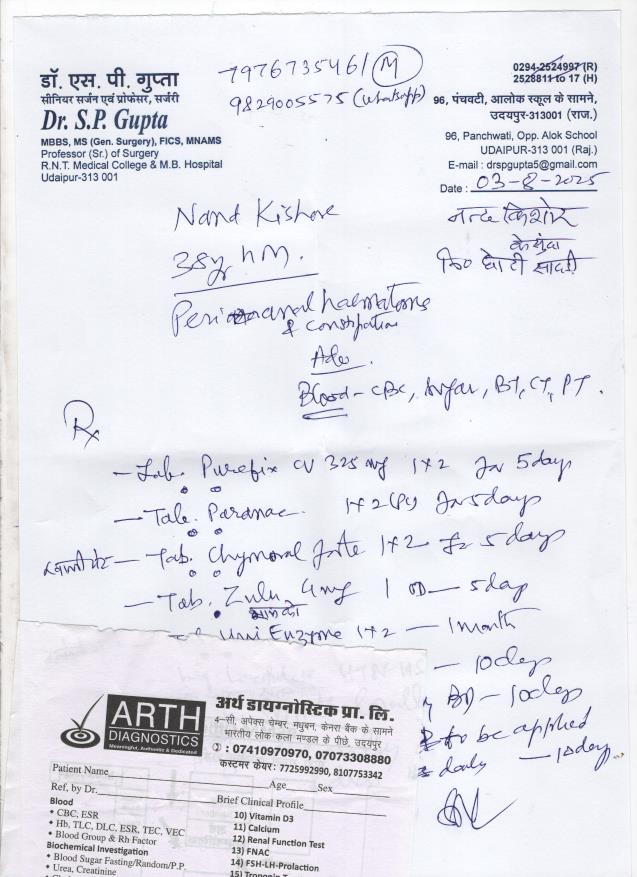 डॉ. एस. पी. गुप्ता
सीनियर सर्जन एवं प्रोफेसर, सर्जरी
Dr. S.P. Gupta
MBBS, MS (Gen. Surgery), FICS, MNAMS
Professor (Sr.) of Surgery
R.N.T. Medical College & M.B. Hospital
Udaipur-313 001
7976735461 (M)
9829005575 (Whatsapp)
0294-2524997 (R)
2528811 to 17 (H)
96, पंचवटी, आलोक स्कूल के सामने,
उदयपुर-313001 (राज.)
96, Panchwati, Opp. Alok School
UDAIPUR-313 001 (Raj.)
E-mail : drspgupta5@gmail.com
Date : 03-8-2025
Nand Kishore
नन्द किशोर
38y
Peri anal haematoma
& constipation
Adv.
Blood - CBC, Sugar, BT, CT, PT.
Rx
- Tab. Purefix CV 325 mg 1x2 for 5 days
- Tab. Paranac 1x2 for 5 days
- Tab. Chymoral forte 1x2 for 5 days
- Tab. Zulu 4 mg 1 OD - 5 day
Uni Enzyme 1x2 - 1 month
- 10 days
BD - 10 days
to be applied
daily - 10 days
ARTH
DIAGNOSTICS
Meaningful, Authentic & Dedicated
अर्थ डायग्नोस्टिक प्रा. लि.
4-सी, अपेक्स चेम्बर, मधुबन, केनरा बैंक के सामने
भारतीय लोक कला मण्डल के पीछे, उदयपुर
: 07410970970, 07073308880
कस्टमर केयर : 7725992990, 8107753342
Patient Name Age Sex
Ref, by Dr. Brief Clinical Profile
Blood
• CBC, ESR
• Hb, TLC, DLC, ESR, TEC, VEC
• Blood Group & Rh Factor
Biochemical Investigation
• Blood Sugar Fasting/Random/P.P.
• Urea, Creatinine
10) Vitamin D3
11) Calcium
12) Renal Function Test
13) FNAC
14) FSH-LH-Prolaction